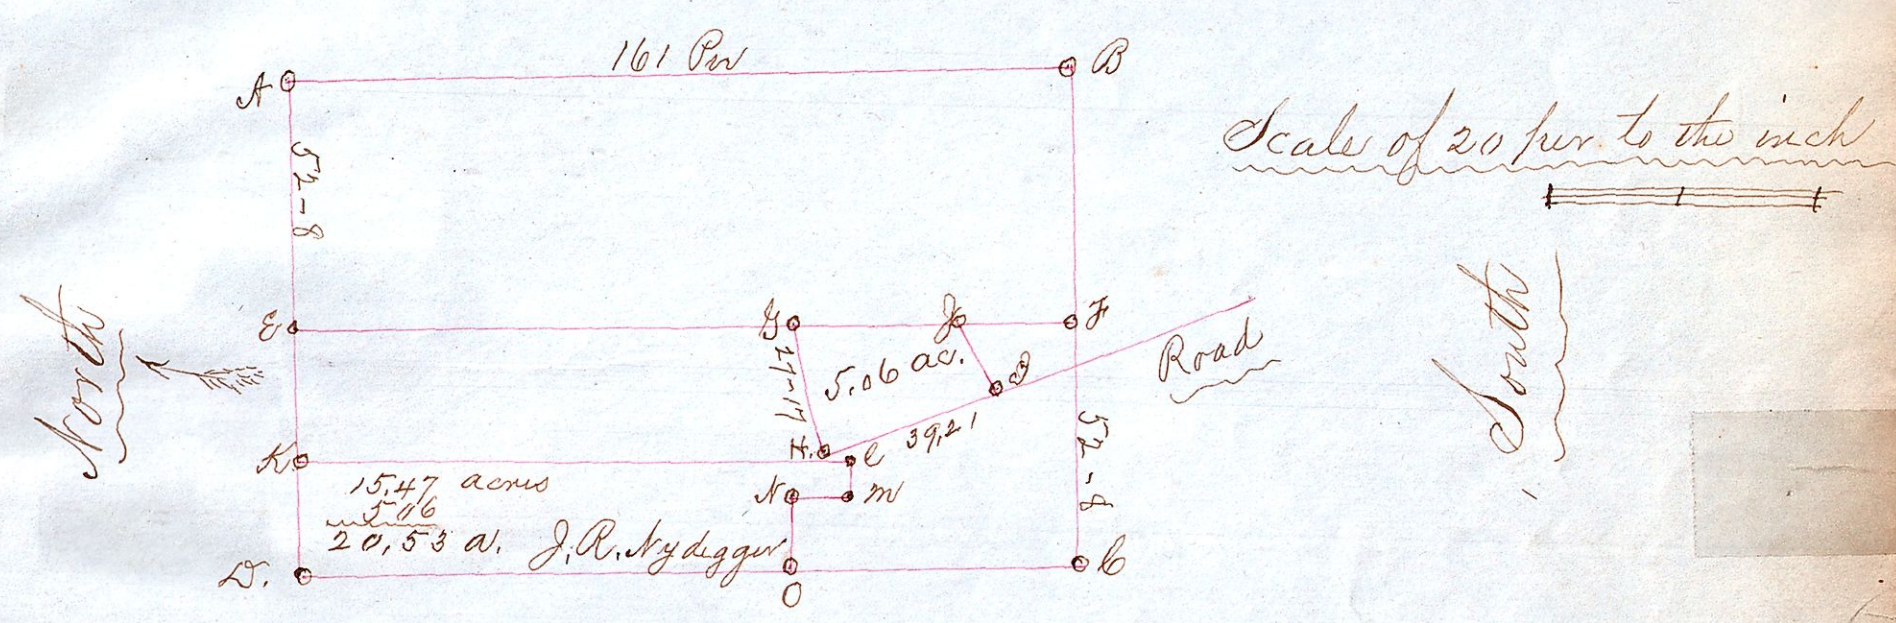 161 Per
A
B
Scale of 20 per. to the inch
52-8
North
South
E
G
J
F
5.06 ac.
27-17
J
Road
H.
39,21
K
l
52-8
15,47 acres
5,06
20,53 a.
N
m
J. R. Nydegger
D.
C
O